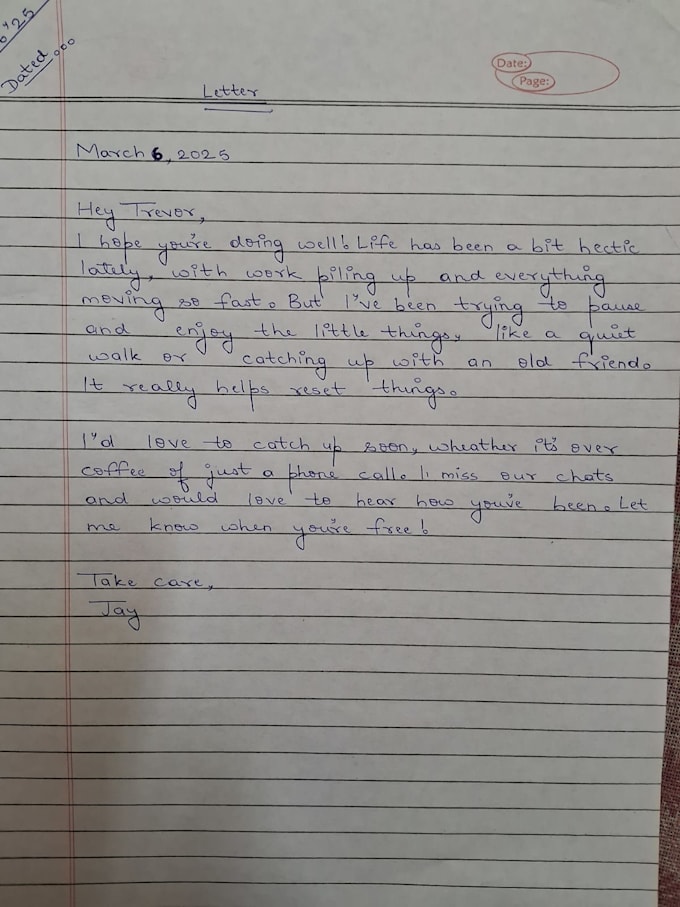 '25
Dated...
Date:
Page:
Letter
March 6, 2025
Hey Trevor,
I hope you're doing well! Life has been a bit hectic
lately, with work piling up and everything
moving so fast. But I've been trying to pause
and enjoy the little things, like a quiet
walk or catching up with an old friend.
It really helps reset things.
I'd love to catch up soon, wheather it's over
coffee of just a phone call. I miss our chats
and would love to hear how you've been. Let
me know when you're free!
Take care,
Jay